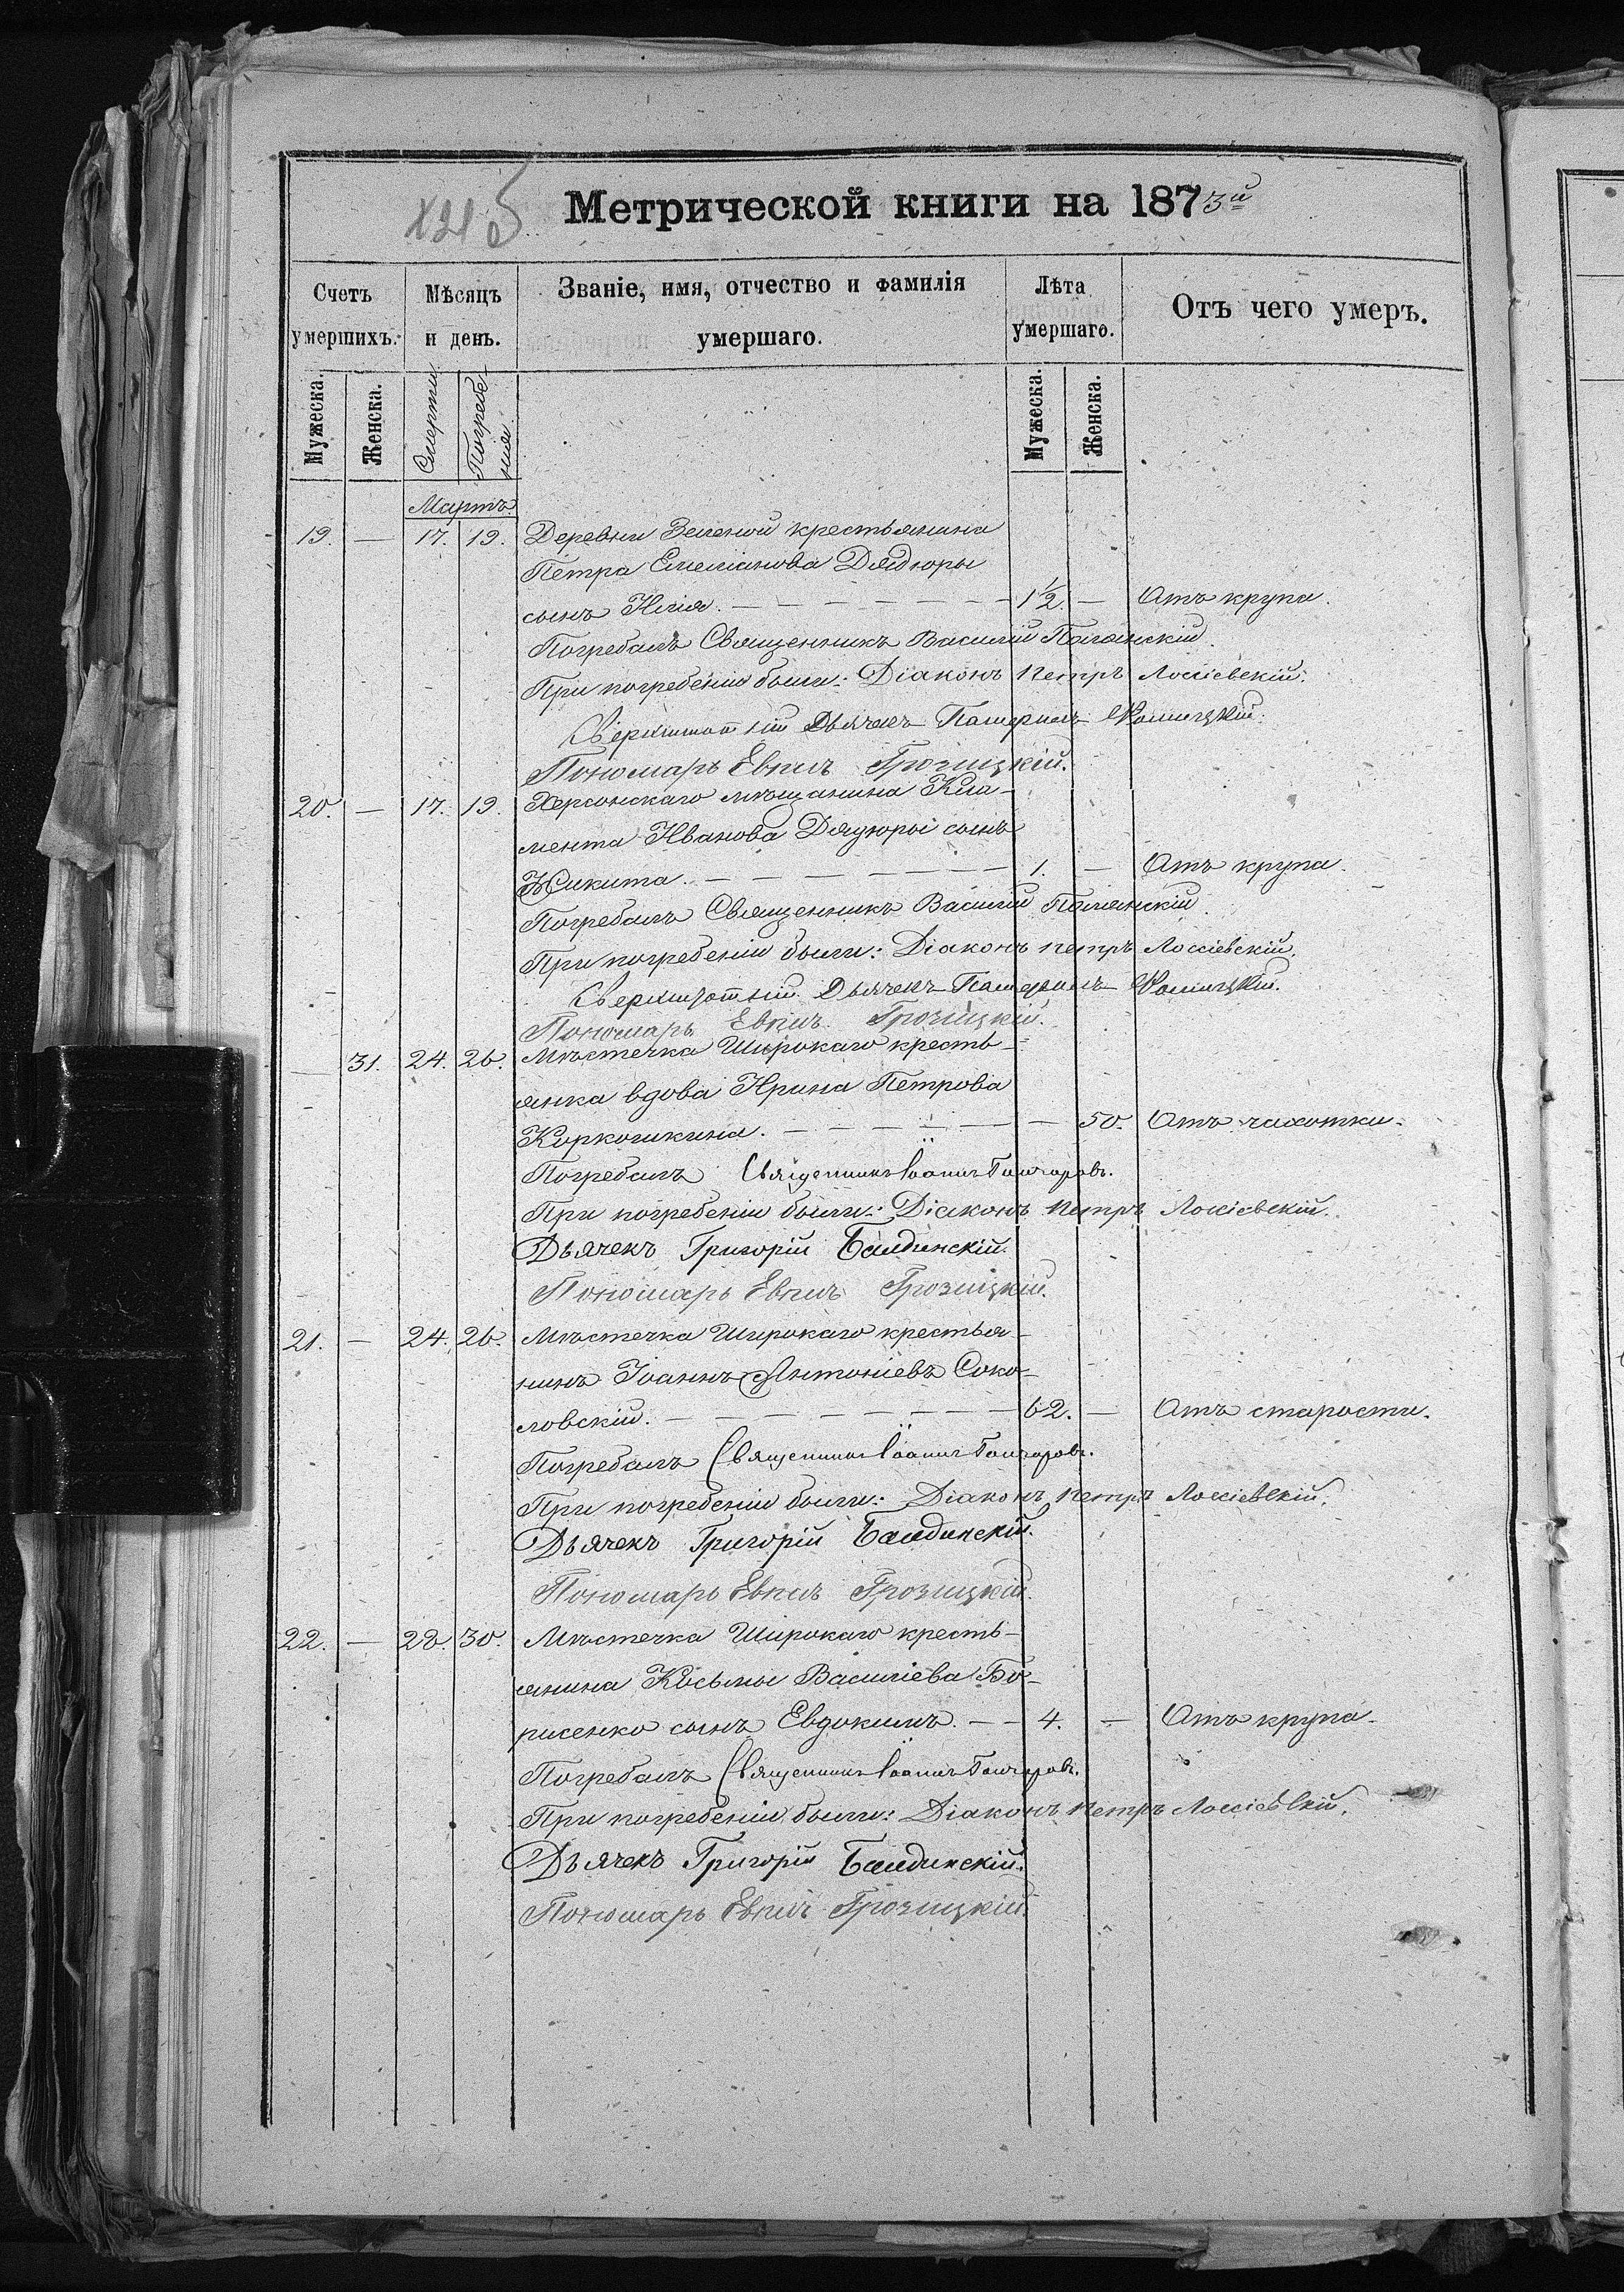 Метрической книги на 1873й
Счетъ умершихъ.
Мѣсяцъ и день.
Званіе, имя, отчество и фамилія умершаго.
Лѣта умершаго.
Отъ чего умеръ.
Мужеска. Женска. Смерти Погребенія Мужеска. Женска.
Мартъ
19. — 17. 19. Деревни Зеленой крестьянина
Петра Емеліанова Дядюры
сынъ Илія. — — — — — — 1½. — Отъ крупа.
Погребалъ Священникъ Василій
При погребеніи были: Діаконъ Петръ Лоссіевскій.
Дьячекъ
Пономарь Грозицкій.
20. — 17. 19. Херсонскаго мѣщанина Кли-
мента Иванова Дядюры сынъ
Никита. — — — — — — 1. — Отъ крупа.
Погребалъ Священникъ Василій
При погребеніи были: Діаконъ Петръ Лоссіевскій.
Дьячекъ
Пономарь Грозицкій.
— 31. 24. 26. Мѣстечка Широкаго кресть-
янка вдова Ирина Петрова
Коркошкина. — — — — — — 50. Отъ чахотки.
Погребалъ Священникъ Іоаннъ Гончаровъ.
При погребеніи были: Діаконъ Петръ Лоссіевскій.
Дьячекъ Григорій Балдинскій.
Пономарь Грозицкій.
21. — 24. 26. Мѣстечка Широкаго крестья-
нинъ Іоаннъ Антоніевъ Соко-
ловскій. — — — — — — — 62. — Отъ старости.
Погребалъ Священникъ Іоаннъ Гончаровъ.
При погребеніи были: Діаконъ Петръ Лоссіевскій.
Дьячекъ Григорій Балдинскій.
Пономарь Грозицкій.
22. — 28. 30. Мѣстечка Широкаго кресть-
янина Косьмы Василіева Бо-
рисенко сынъ Евдокимъ. — — 4. — Отъ крупа.
Погребалъ Священникъ Іоаннъ Гончаровъ.
При погребеніи были: Діаконъ Петръ Лоссіевскій.
Дьячекъ Григорій Балдинскій.
Пономарь Грозицкій.